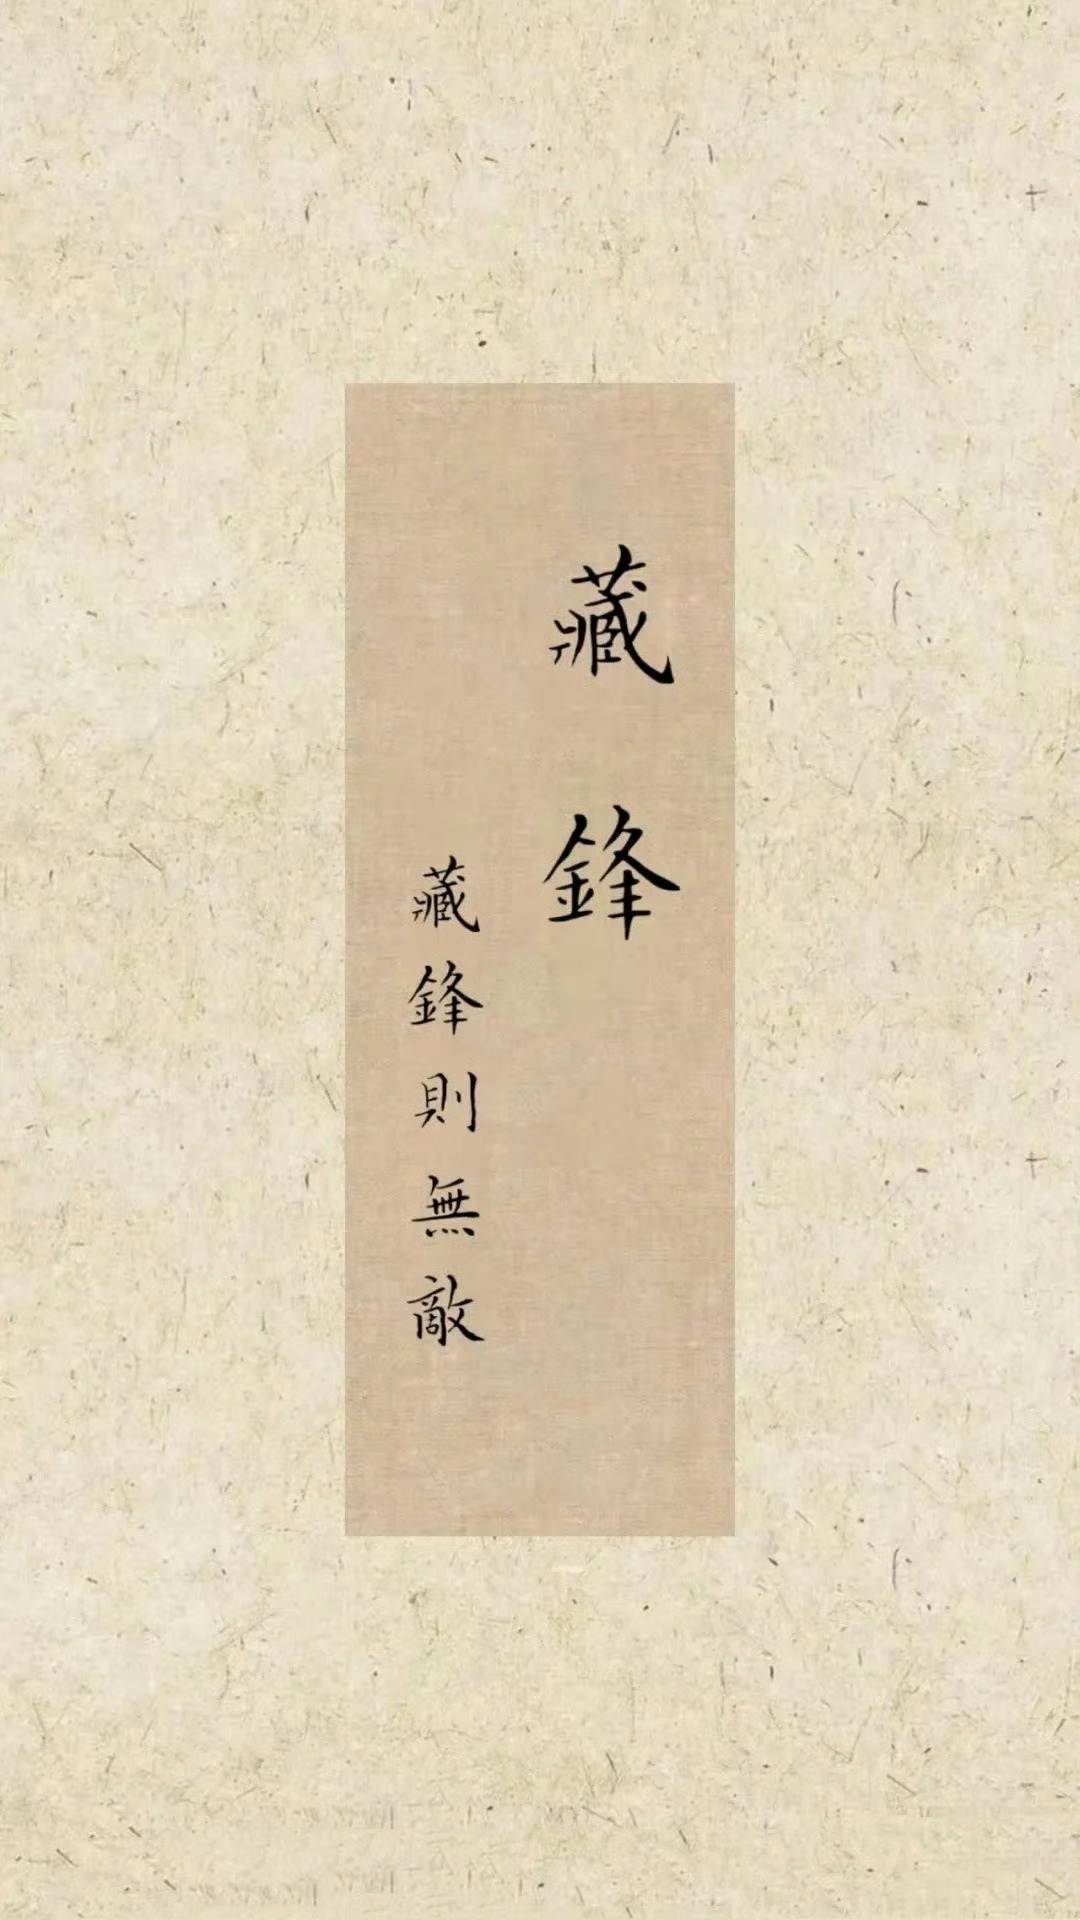 藏鋒
藏鋒則無敵